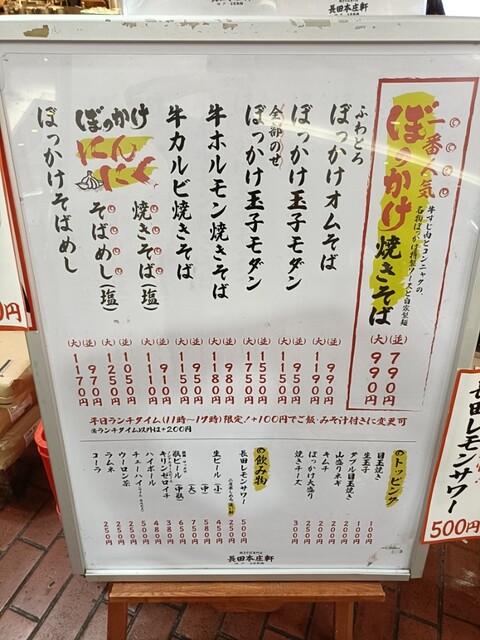 長田本庄軒
一番人気
ぼっかけ焼きそば
牛すじ肉とコンニャクの、
名物ぼっかけ特製ソースと自家製麺
(並) 790円
(大) 990円
ふわとろ
ぼっかけオムそば
(並) 990円
(大) 1190円
ぼっかけ玉子モダン
(並) 950円
(大) 1150円
全部のせ
ぼっかけ玉子モダン
(並) 1550円
(大) 1750円
牛ホルモン焼きそば
(並) 980円
(大) 1180円
牛カルビ焼きそば
(並) 950円
(大) 1150円
ぼっかけ
にんにく
焼きそば(塩)
(並) 910円
(大) 1110円
そばめし(塩)
(並) 1050円
(大) 1250円
ぼっかけそばめし
(並) 970円
(大) 1170円
平日ランチタイム(11時〜17時)限定!+100円でご飯・みそ汁付きに変更可
※ランチタイム以外は+200円
トッピング
目玉焼き 100円
生玉子 100円
ダブル目玉焼き 200円
山盛りネギ 200円
キムチ 200円
ぼっかけ大盛り 250円
焼きチーズ 300円
飲み物
長田レモンサワー 500円
生ビール (小) 250円
(中) 450円
(大) 580円
瓶ビール (中瓶) 650円
キリンゼロイチ 380円
ハイボール 480円
チューハイ 350円
ウーロン茶 250円
ラムネ 250円
コーラ 250円
長田本庄軒
長田レモンサワー
500円
0円